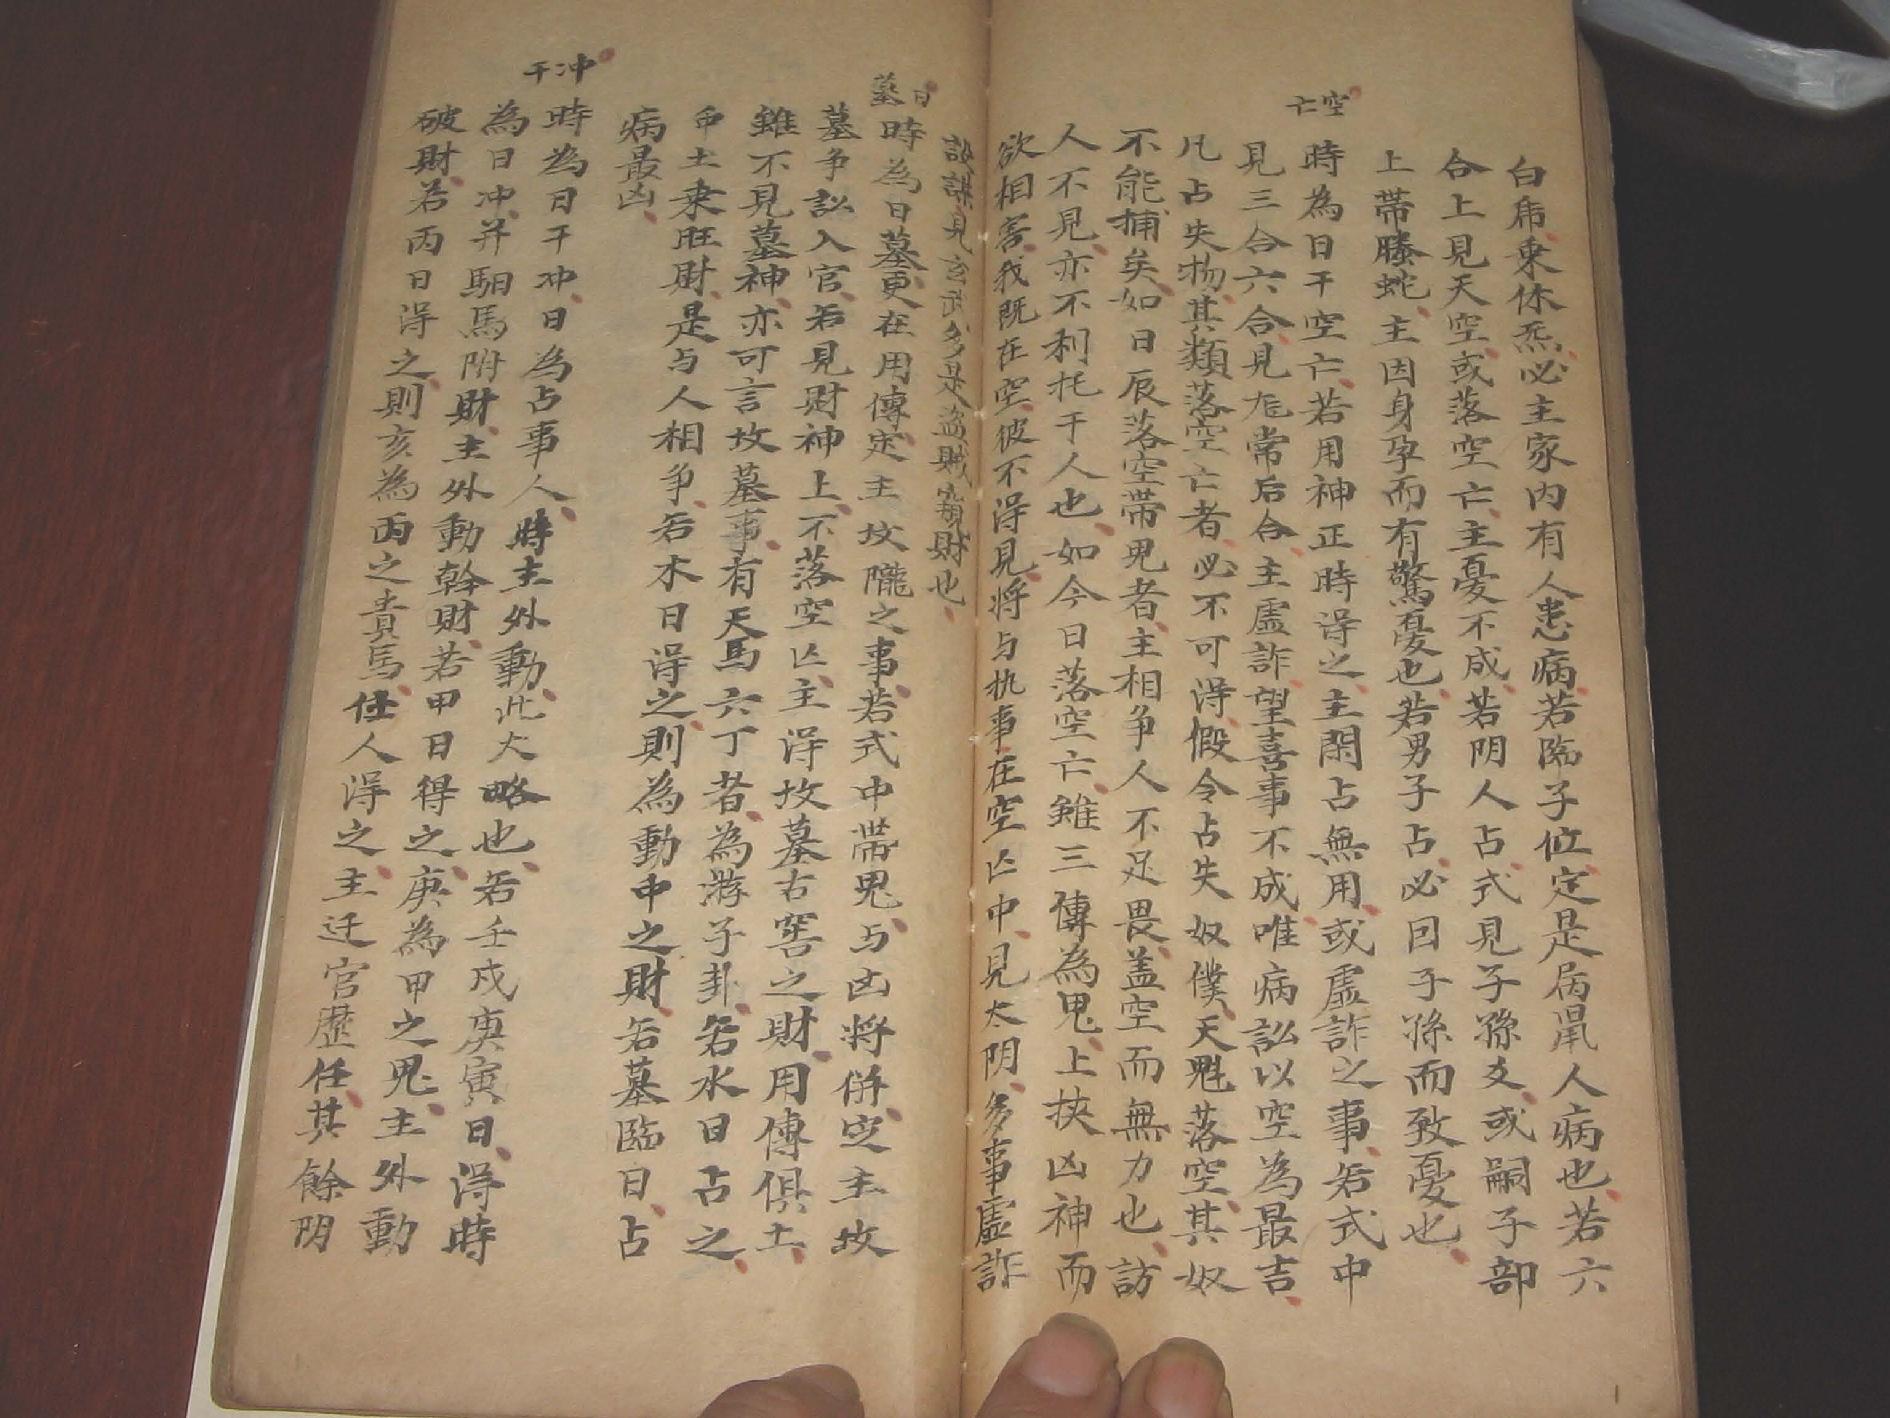 白乕乗休炁必主家内有人患病若臨子位定是房㕑人病也若六
合上見天空或落空亡主憂不成若阴人占式見子孫爻或嗣子部
上帶螣蛇主因身孕而有驚憂也若男子占必因子孫而致憂也
空亡
時為日干空亡若用神正時淂之主閑占無用或虛詐之事若式中
見三合六合見龙常后合主虛詐望喜事不成唯病訟以空為最吉
凡占失物其類落空亡者必不可淂假令占失奴僕天魁落空其奴
不能捕矣如日辰落空帶鬼者主相争人不足畏盖空而無力也訪
人不見亦不利托于人也如今日落空亡雖三傳為鬼上挾凶神而
欲相害我既在空彼不淂見将与执事在空亡中見太阴多事虛詐
設謀見玄武多是盗賊竊財也
日墓
時為日墓更在用傳定主坟隴之事若式中帶鬼与凶将併定主坟
墓争訟入官若見財神上不落空亡主淂坟墓古窖之財用傳俱土
雖不見墓神亦可言坟墓事有天馬六丁者為游子卦若水日占之
申土乗旺財是与人相争若木日淂之則為動中之財若墓臨日占
病最凶
冲干
時為日干冲日為占事人時主外動此大略也若壬戌庚寅日淂時
為日冲并馹馬附財主外動幹財若甲日得之庚為甲之鬼主外動
破財若丙日淂之則亥為丙之貴馬仕人淂之主迁官歷任其餘阴